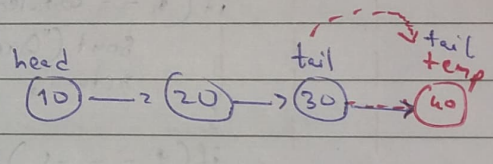 head tail tail
temp
10 20 30 40